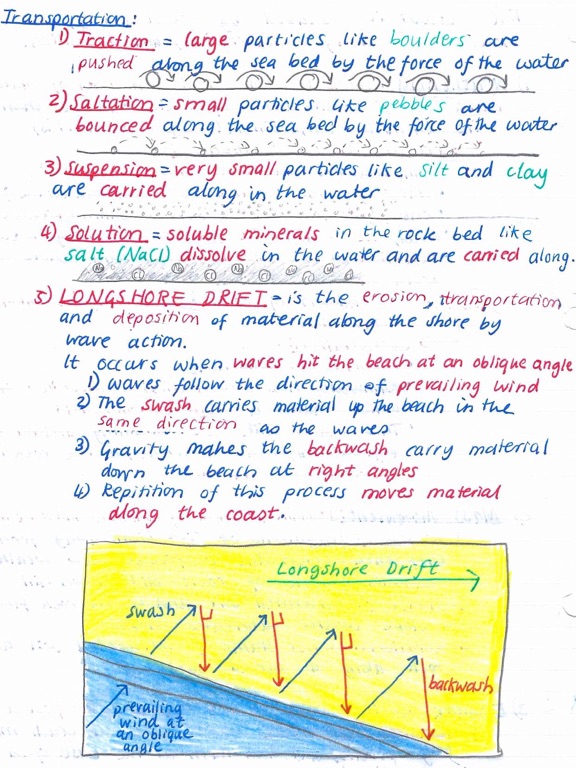 Transportation:
1) Traction = large particles like boulders are
pushed along the sea bed by the force of the water
2) Saltation = small particles like pebbles are
bounced along the sea bed by the force of the water
3) Suspension = very small particles like silt and clay
are carried along in the water
4) Solution = soluble minerals in the rock bed like
salt (NaCl) dissolve in the water and are carried along.
5) LONGSHORE DRIFT - is the erosion, transportation
and deposition of material along the shore by
wave action.
It occurs when waves hit the beach at an oblique angle
1) waves follow the direction of prevailing wind
2) The swash carries material up the beach in the
same direction as the waves
3) Gravity makes the backwash carry material
down the beach at right angles
4) Repitition of this process moves material
along the coast.
Longshore Drift
swash
backwash
prevailing
wind at
an oblique
angle